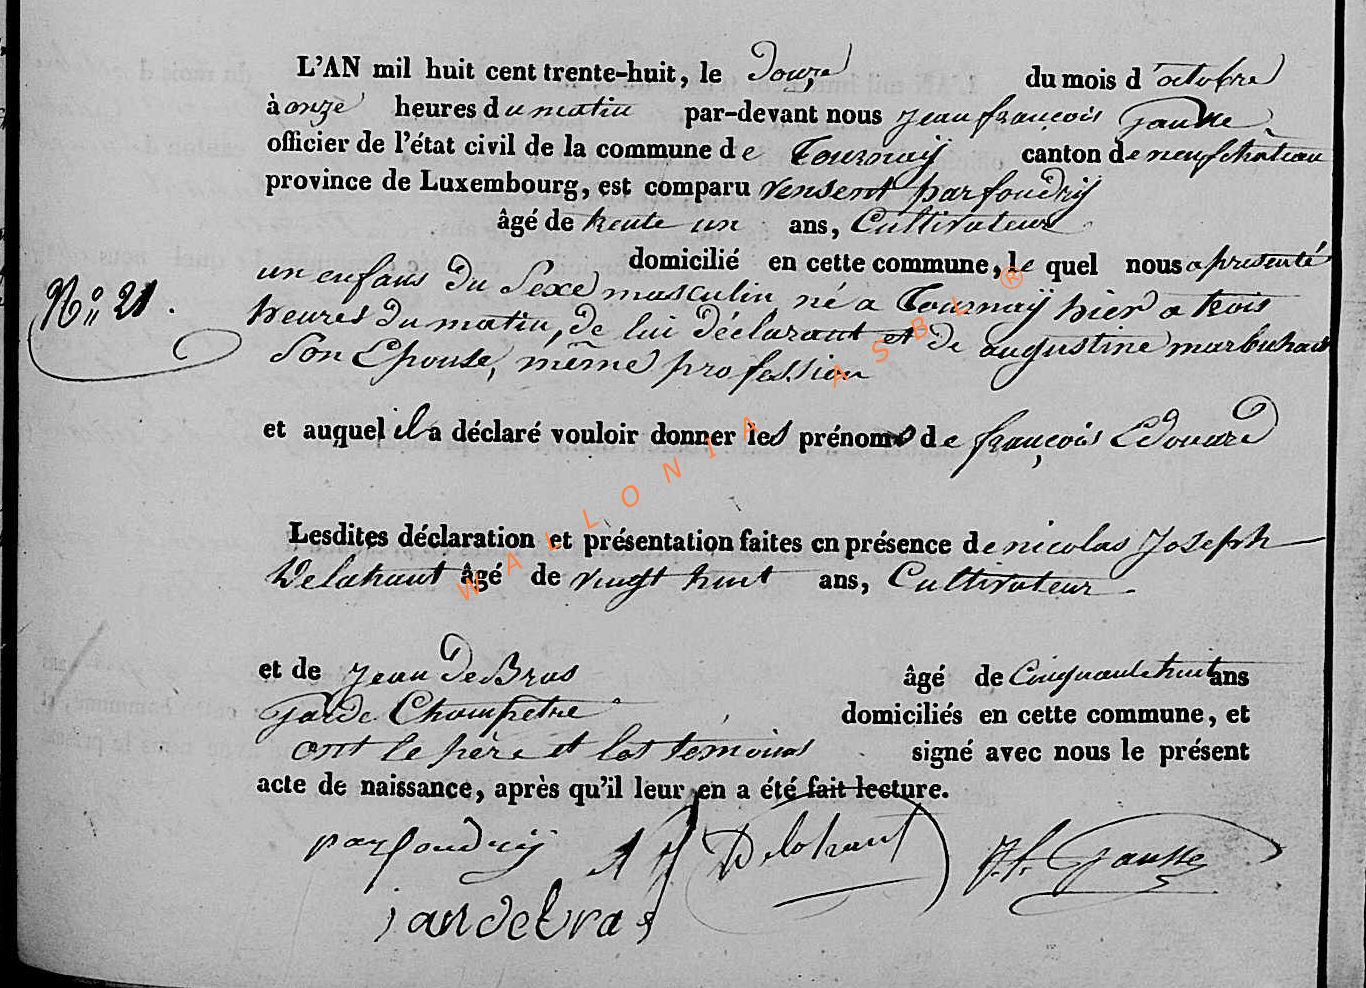 L'AN mil huit cent trente-huit, le Douze du mois d'octobre
à onze heures du matin par-devant nous jean françois Gausse
officier de l'état civil de la commune de Tournay canton de neufchateau
province de Luxembourg, est comparu vensent parfondry
âgé de trente un ans, Cultivateur
domicilié en cette commune, le quel nous a presenté
un enfans du Sexe masculin né a Tournaÿ hier a trois
N° 21.
heures du matin, de lui déclarant et de augustine marbehant
Son Epouse, même profession
et auquel il a déclaré vouloir donner les prénoms de françois Edouard
Lesdites déclaration et présentation faites en présence de nicolas Joseph
Delahaut âgé de vingt huit ans, Cultivateur
et de jean DeBras âgé de Cinquante huit ans
Garde Champetre domiciliés en cette commune, et
ont le père et les temoins signé avec nous le présent
acte de naissance, après qu'il leur en a été fait lecture.
parfondrÿ Delahaut J. f. Gausse
jandebras
WALLONIA ASBL ®